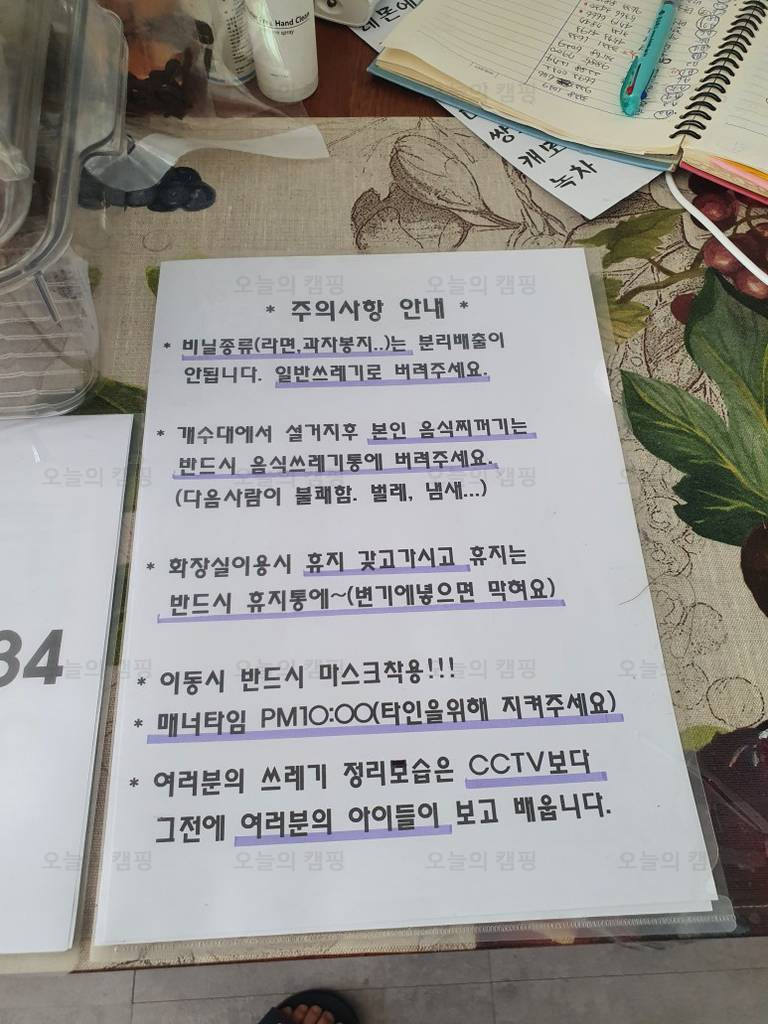 Hand Clean
spray
레몬에
쌍
캐모
녹차
* 주의사항 안내 *
* 비닐종류(라면,과자봉지..)는 분리배출이
안됩니다. 일반쓰레기로 버려주세요.
* 개수대에서 설거지후 본인 음식찌꺼기는
반드시 음식쓰레기통에 버려주세요.
(다음사람이 불쾌함. 벌레, 냄새...)
* 화장실이용시 휴지 갖고가시고 휴지는
반드시 휴지통에~(변기에넣으면 막혀요)
* 이동시 반드시 마스크착용!!!
* 매너타임 PM10:00(타인을위해 지켜주세요)
* 여러분의 쓰레기 정리모습은 CCTV보다
그전에 여러분의 아이들이 보고 배웁니다.
34
오늘의 캠핑